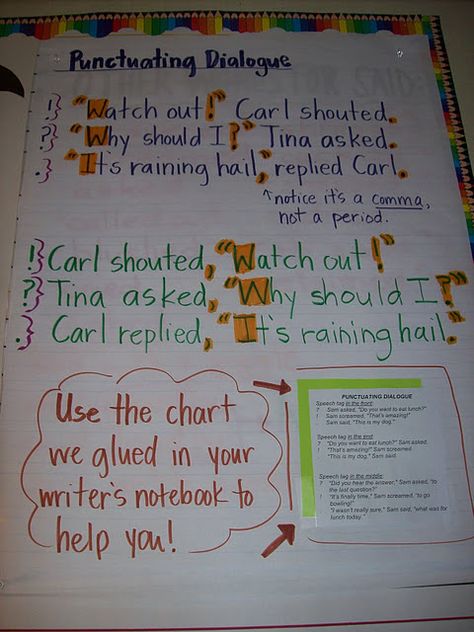 Punctuating Dialogue
! "Watch out!" Carl shouted.
? "Why should I?" Tina asked.
. "It's raining hail," replied Carl.
↑notice it's a comma,
not a period.
! Carl shouted, "Watch out!"
? Tina asked, "Why should I?"
. Carl replied, "It's raining hail."
Use the chart
we glued in your
writers notebook to
help you!
PUNCTUATING DIALOGUE
Speech tag in the front:
? Sam asked, "Do you want to eat lunch?"
! Sam screamed, "That's amazing!"
Sam said, "This is my dog."
Speech tag in the end:
? "Do you want to eat lunch?" Sam asked.
! "That's amazing!" Sam screamed.
"This is my dog," Sam said.
Speech tag in the middle:
? "Did you hear the answer," Sam asked, "to
the last question?"
! "It's finally time," Sam screamed, "to go
bowling!"
"I wasn't really sure," Sam said, "what was for
lunch today."